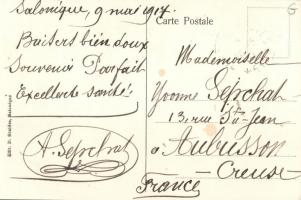 Salonique, 9 mai 1917.
Carte Postale
Baisers bien doux
Souvenir Parfait
Excellente santé
A. Seychat
Mademoiselle
Yvonne Seychat
13, rue St-Jean
à Aubusson
Creuse
France